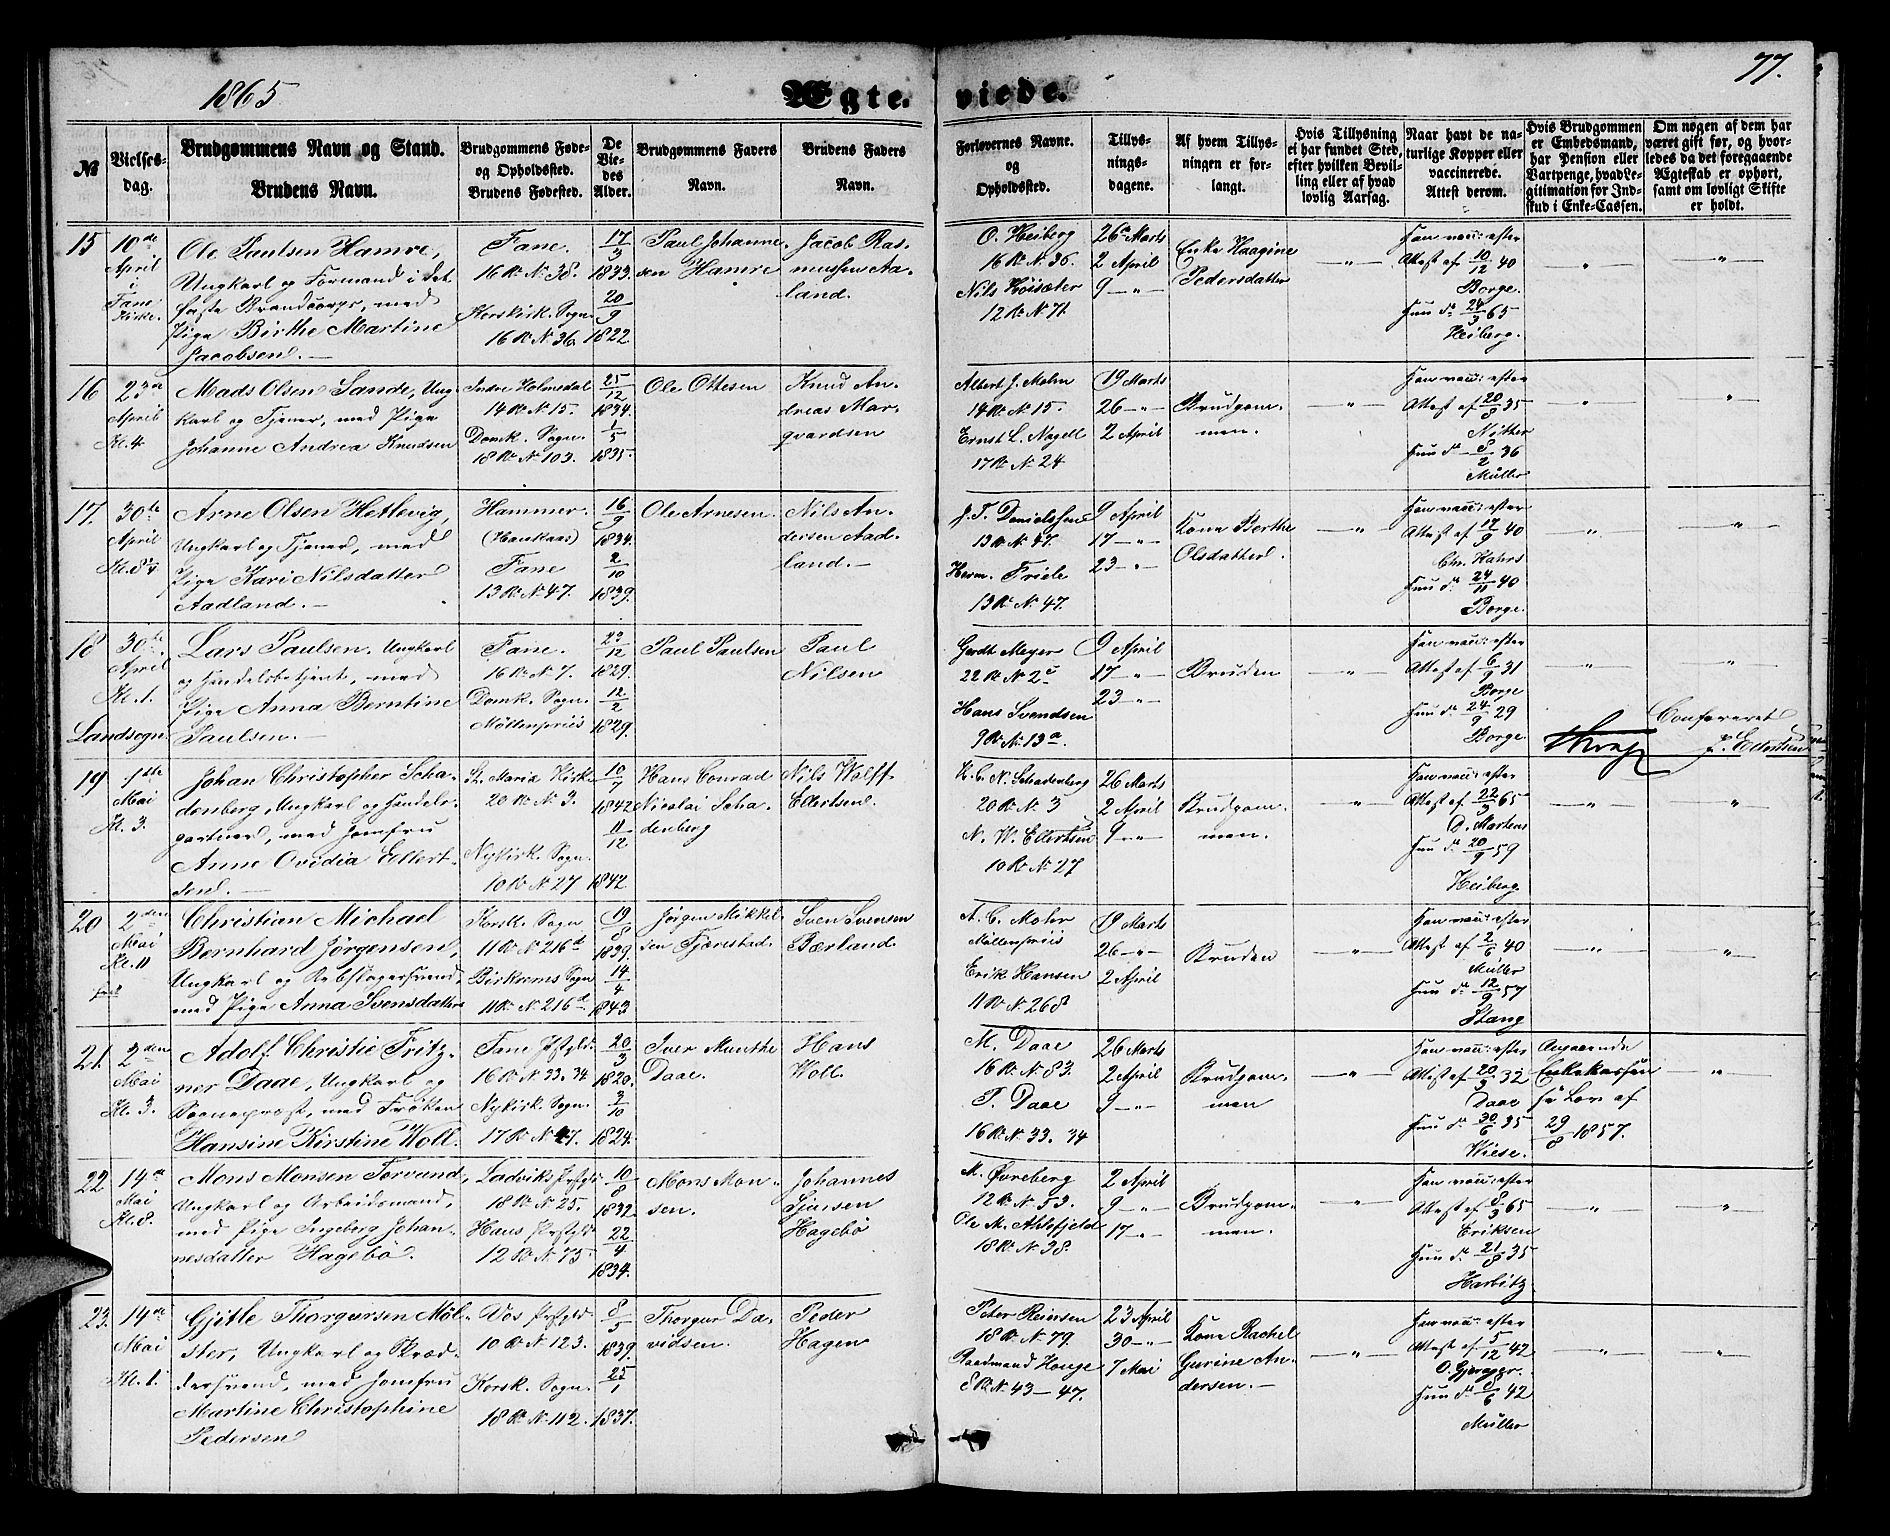 1865
Ægte-
viede.
77.
№
Vielses-
dag.
Brudgommens Navn og Stand.
Brudens Navn.
Brudgommens Føde-
og Opholdsted.
Brudens Fødested.
De
Vie-
des
Alder.
Brudgommens Faders
Navn.
Brudens Faders
Navn.
Forlovernes Navne.
og
Opholdsted.
Tillys-
nings-
dagene.
Af hvem Tillys-
ningen er for-
langt.
Hvis Tillysning
ei har fundet Sted,
efter hvilken Bevil-
ling eller af hvad
lovlig Aarsag.
Naar havt de na-
turlige Kopper eller
vaccinerede.
Attest derom.
Hvis Brudgommen
er Embedsmand,
har Pension eller
Vartpenge, hvad Le-
gitimation for Ind-
skud i Enke-Cassen.
Om nogen af dem har
været gift før, og hvor-
ledes da det foregaaende
Ægteskab er ophørt,
samt om lovligt Skifte
er holdt.
15
10de
April
i
Fane
Kirke.
Ole Paulsen Hamre,
Ungkarl og Formand i det
faste Brandcorps, med
Pige Birthe Martine
Jacobsen.
Fane.
16 R. N. 38.
Korskirk. Sogn.
16 R. N. 36.
17/3
1833.
20/9
1822.
Paul Johanne-
sen Hamre
Jacob Ras-
mussen Aa-
land.
O. Heiberg
16 R. N. 36.
Nils Höisæter
12 R. N. 71
26de Marts
2 April
9 - " -
Enke Haagine
Pedersdatter
- " -
Han vacc: efter
Attest af 10/12 40
Borge.
Hun do 24/3 65
Heiberg.
"
- " -
16
23de
April
Kl. 4
Mads Olsen Sande, Ung-
karl og Tjener, med Pige
Johanne Andrea Knudsen
Indre Holmedal
14 R. N. 15.
Domk. Sogn.
18 R. N. 103.
25/12
1834.
1/5
1835.
Ole Ottesen
Knud An-
dreas Mar-
qvardsen
Albert J. Mohn
14 R. N. 15.
Ernst L. Nagell
17 R. N. 24
19 Marts
26 - " -
2 April
Brudgom-
men.
- " -
Han vacc: efter
Attest af 20/8 35
Nitter
Hun do 8/2 36
Müller
"
"
17.
30te
April
Arne Olsen Hetlevig,
Ungkarl og Tjener, med
Pige Kari Nilsdatter
Aadland.
Hammer.
(Hauskaas)
Fane
13 R. N. 47.
16/9
1834.
2/10
1839.
Ole Arnesen.
Nils An-
dersen Aad-
land.
J. T. Danielssen
13 R. N. 47.
Herm. Friele
13 R. N. 47.
9 April
17 - " -
23 - " -
Kone Berthe
Olsdatter.
- " -
Han vacc: efter
Attest af 17/9 40
Chr. Kahrs
Hun do 24/11 40
Borge.
- " -
"
18
30te
April
Kl. 1.
Landsogn.
Lars Paulsen. Ungkarl
og Handelsbetjent, med
Pige Anna Berntine
Paulsen.
Fane.
16 R. N. 7.
Domk. Sogn.
Möllenpriis
23/12
1829.
12/2
1829.
Paul Paulsen
Paul
Nilsen
Gerdt Meyer
22 R. N. 2c
Hans Svendsen
9 R. N. 13a.
9 April
17 - " -
23 - " -
Bruden
- " -
Han vacc: efter
Attest af 6/9 31
Borge
Hun do 24/9 29
Borge.
- " -
"
Confereret
J. Ellertsen
19
1ste
Mai
Kl. 3.
Johan Christopher Scha-
denberg, Ungkarl og Handels-
gartner, med Jomfru
Anne Ovidia Ellert-
sen.
St. Maria Kirke
20 R. N. 3.
Nykirk. Sogn.
10 R. N. 27
10/7
1842
11/12
1842.
Hans Conrad
Nicolai Scha-
denberg
Nils Wolff
Ellertsen.
H. C. N. Schadenberg
20 R. N. 3
N. W. Ellertsen
10 R. N. 27
26 Marts
2 April
9 - " -
Brudgom-
men.
"
Han vacc: efter
Attest af 22/3 65
D. Martens
Hun do 20/9 59
Heiberg
- " -
"
20
2den
Mai
Kl. 11
Christian Michael
Bernhard Jörgensen,
Ungkarl og Rebslagersvend,
med Pige Anna Svensdatter
Korsk. Sogn
11 R. N. 216d
Birkenes Sogn
11 R. N. 216d
19/8
1839.
14/4
1843.
Jörgen Mikkel-
sen Fjærestad.
Sven Svensen
Bærland.
A. C. Mohr
Möllenpriis
Erik Hansen
11 R. N. 268
19 Marts
26 - " -
2 April
Bruden
- " -
Han vacc: efter
Attest af 2/6 40
Müller
Hun do 12/9 57
Stang
- " -
- " -
21.
2den
Mai
Kl. 3.
Adolf Christie Fritz-
ner Daae, Ungkarl og
Sognepræst, med Fröken
Hansine Kirstine Woll.
Fane Præstgld.
16 R. N. 33. 34
Nykirk. Sogn.
17 R. N. 47.
20/3
1820.
3/10
1824.
Iver Munthe
Daae.
Hans
Woll.
M. Daae
16 R. N. 83.
T. Daae
16 R. N. 33. 34
26 Marts
2 April
9 - " -
Brudgom-
men
- " -
Han vacc: efter
Attest af 20/9 32
Daae
Hun do 30/6 35
Wiese.
Angaaende
Enkekassen
se Lov af
29/8 1857.
- " -
22
14de
Mai
Kl. 8.
Mons Monsen Torvund,
Ungkarl og Arbeidsmand,
med Pige Ingeberg Johan-
nesdatter Hagebö.
Ladviks Præstgld.
18 R. N. 25.
Haus Præstgld.
12 R. N. 75
10/8
1832.
22/4
1834.
Mons Mon-
sen.
Johannes
Hagebö
M. Övreberg
12 R. N. 53.
Ole M. Ahlefjeld
18 R. N. 38.
2 April
9 - " -
17 - " -
Brudgom-
men.
- " -
Han vacc: efter
Attest af 8/3 65
Eriksen
Hun do 21/8 35
Harbitz.
- " -
"
23.
14de
Mai
Kl. 1.
Gjitle Thorgursen Möl-
ster, Ungkarl og Skræd-
dersvend, med Jomfru
Martine Christophine
Pedersen
Vos Præstgld.
10 R. N. 123.
Korsk. Sogn.
18 R. N. 112.
8/5
1839.
25/1
1837.
Thorgur Da-
vidsen.
Peder
Hagen
Peter Reimsen
18 R. N. 79.
Raadmand Konge
8 R. N. 43 - 47.
23 April
30 - " -
7 Mai
Kone Rachel
Gurine An-
dersen.
- " -
Han vacc: efter
Attest af 5/12 42
Hun do 8/6 42
Müller
- " -
- " -